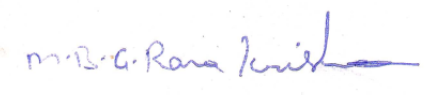 M.B.G.Rama Krishna